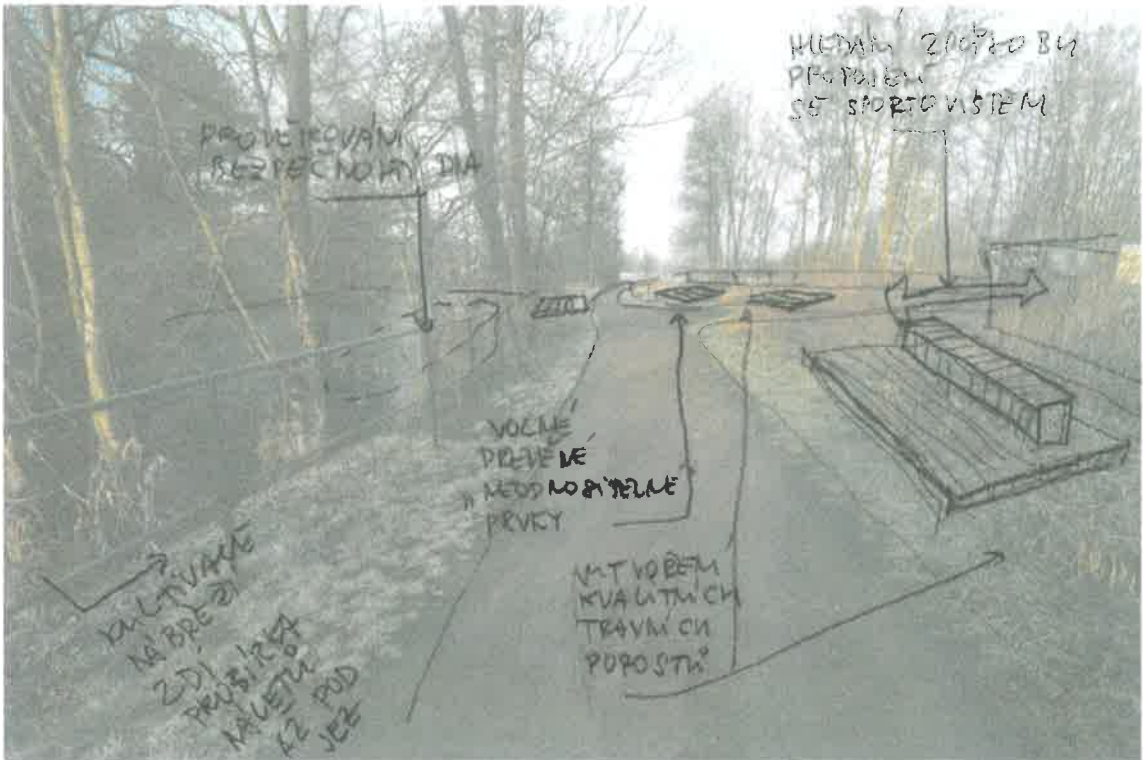 HLEDÁNÍ ZPŮSOBU
PROPOJENÍ
SE SPORTOVIŠTĚM
BEZPEČNOSTNÍ
VOLNÉ
DŘEVĚNÉ
PRVKY
VYTVOŘENÍ
KVALITNÍCH
TRAVNÍCH
POROSTŮ
KULTIVACE
NÁBŘEŽÍ
ZDÍ
PROBÍRKA
NÁLETŮ
AŽ POD
JEZ